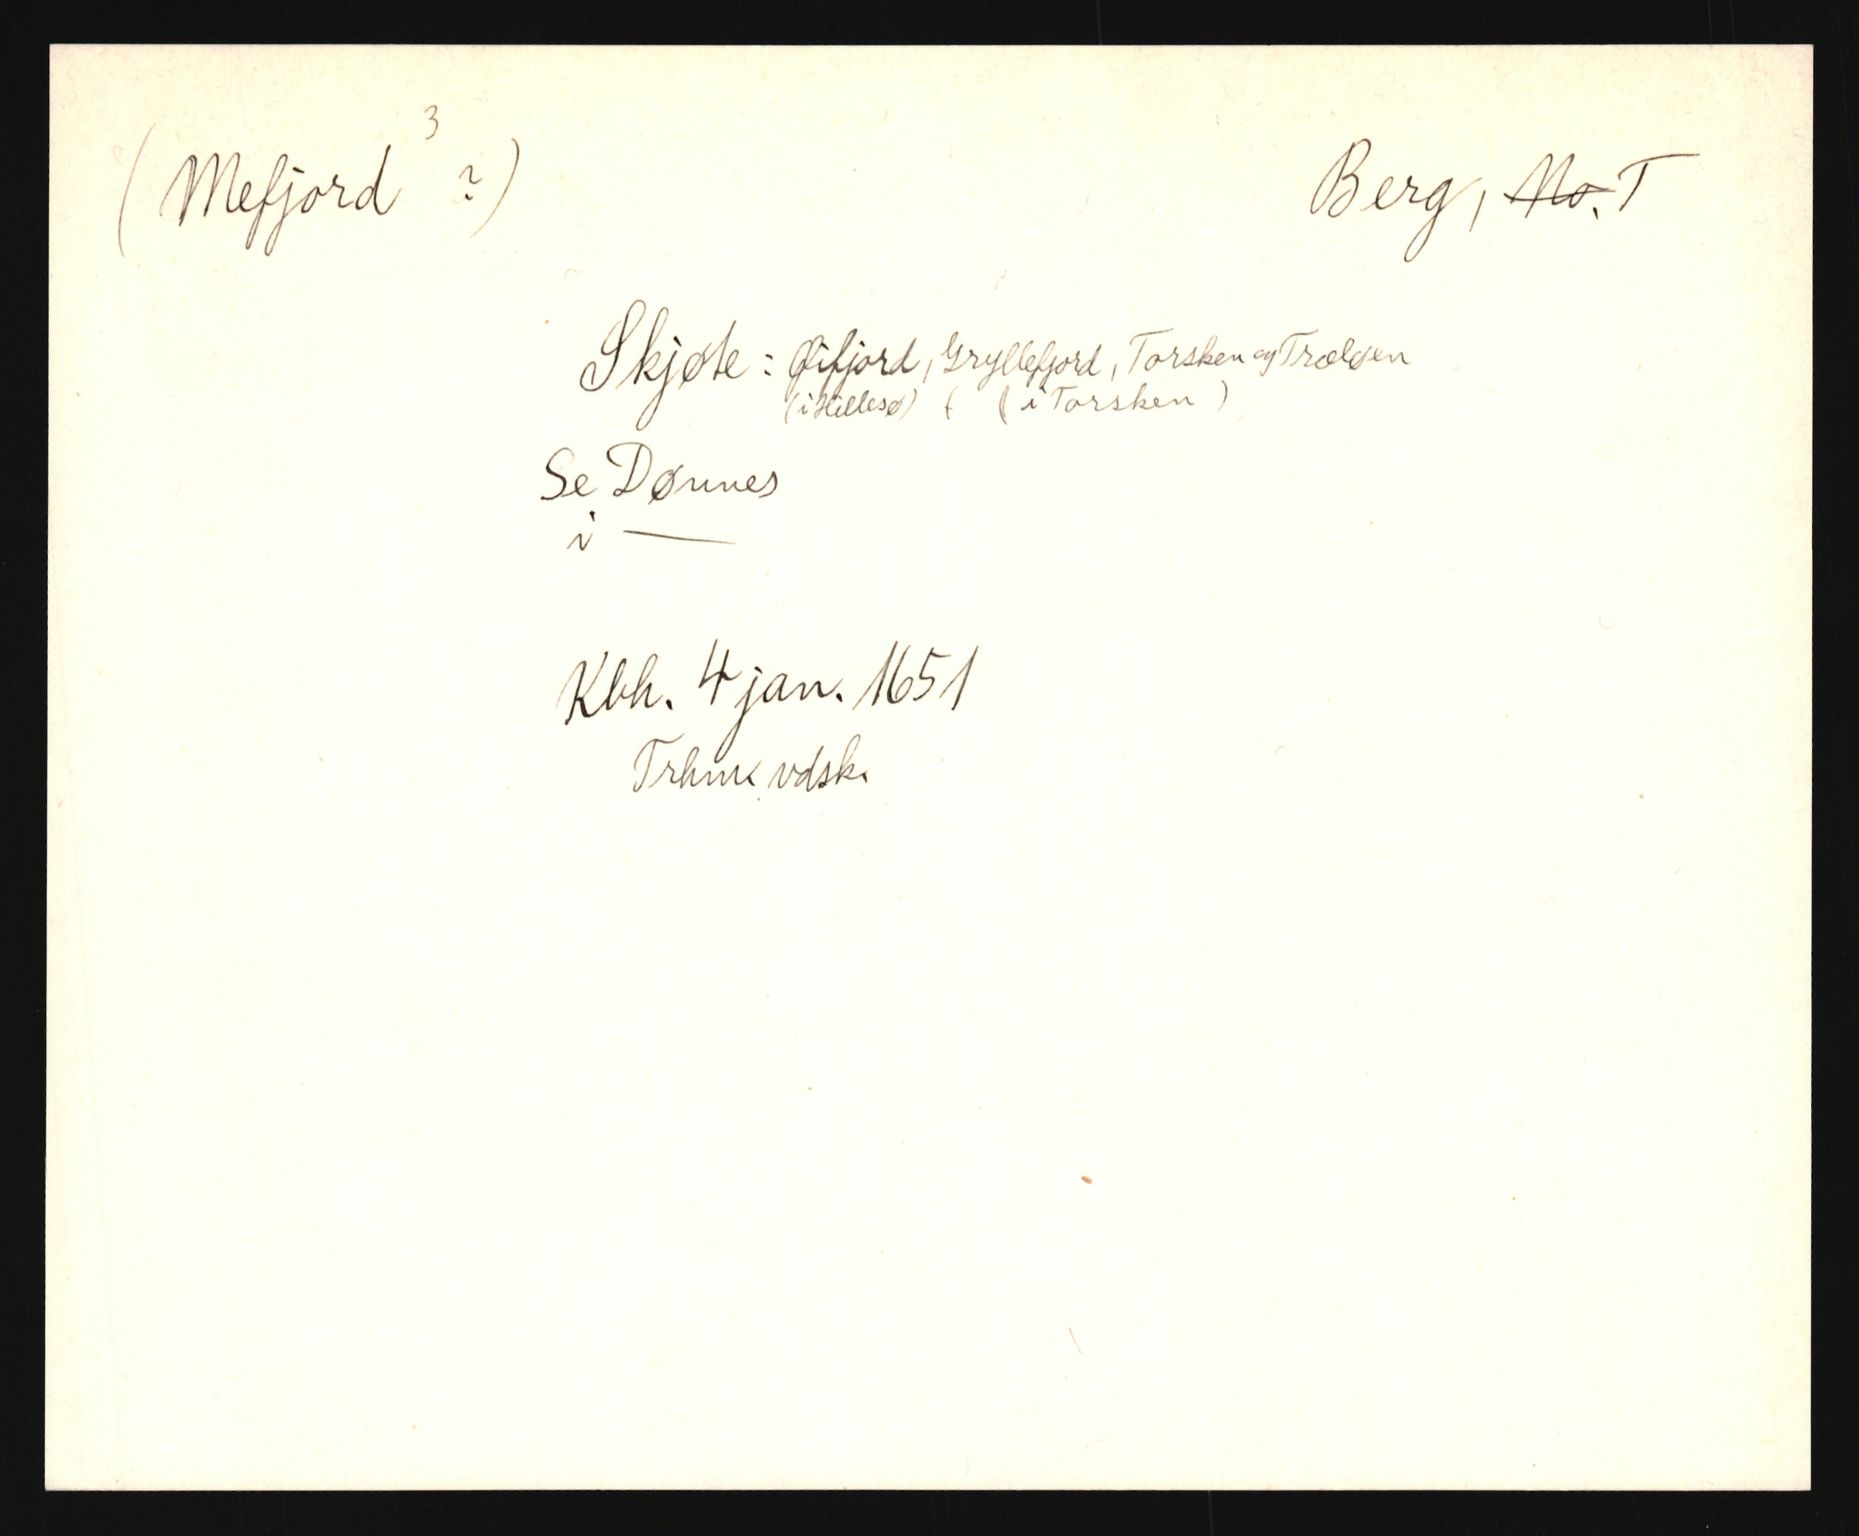 3
(Mefjord ?) Berg, No. T
Skjøte: Øifjord, Gryllefjord, Torsken og Træløen
(i Hillesø) ( (i Torsken)
Se Dønnes
i —
Kbh. 4 jan. 1651
Trhmk vdsk.